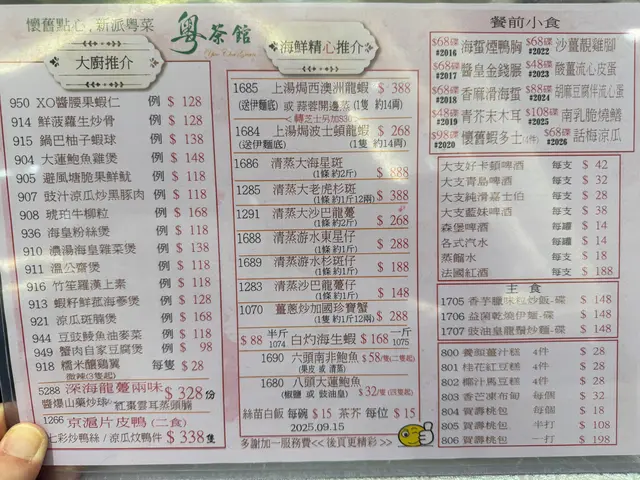 懷舊點心，新派粵菜
粵茶館
大廚推介
950 XO醬腰果蝦仁 例 $ 128
914 鮮菠蘿生炒骨 例 $ 128
915 鍋巴柚子蝦球 例 $ 138
904 大蓮鮑魚雞煲 例 $ 148
905 避風塘脆果鮮魷 例 $ 118
907 豉汁涼瓜炒黑豚肉 例 $ 118
908 琥珀牛柳粒 例 $ 168
936 海皇粉絲煲 例 $ 118
910 濃湯海皇雜菜煲 例 $ 138
911 溫公齋煲 例 $ 118
916 竹笙羅漢上素 例 $ 118
913 蝦籽鮮菰海參煲 例 $ 128
921 涼瓜斑腩煲 例 $ 168
944 豆豉鯪魚油麥菜 例 $ 118
949 蟹肉自家豆腐煲 例 $ 98
918 糯米釀鷄翼 每隻 $ 28
(3隻起)
5288 深海龍躉兩味 $ 328 份
醬爆山藥炒球/ 紅棗雲耳蒸頭腩
1266 京滬片皮鴨 (二食)
上彩炒鴨絲 / 涼瓜炆鴨件 $ 338 隻
海鮮精心推介
1685 上湯焗西澳洲龍蝦 $ 388
(送伊麵底) 或 蒜蓉開邊蒸 (1隻 約14両)
1684 上湯焗波士頓龍蝦 $ 268
(送伊麵底) (1隻 約14両)
1686 清蒸大海星斑 $ 888
(1條 約2斤)
1285 清蒸大老虎杉斑 $ 388
(1條 約1斤12兩)
1291 清蒸大沙巴龍躉 $ 268
(1條 約2斤)
1688 清蒸游水東星仔 $ 288
(1條 約1斤)
1689 清蒸游水杉斑仔 $ 188
(1條 約1斤)
1283 清蒸沙巴龍躉仔 $ 148
(1條 約1斤)
1070 薑蔥炒加國珍寶蟹 $ 288
(1隻 約1斤12兩)
$ 88 半斤 1074 白灼海生蝦 $ 168 一斤 1075
1690 六頭南非鮑魚 $58/隻(二隻起)
(果皮 或 清蒸)
1680 八頭大蓮鮑魚 $32/隻 (四隻起)
(椒鹽 或 豉油皇)
絲苗白飯 每碗 $ 15 茶芥 每位 $ 15
2025.09.15
多謝加一服務費<< 後頁更精彩 >>
餐前小食
$68碟 #2016 海蜇煙鴨胸 $68碟 #2022 沙薑靚雞腳
$68碟 #2017 醬皇金錢脹 $48碟 #2023 酸薑流心皮蛋
$68碟 #2018 香麻滑海蜇 $88碟 #2024 胡麻豆腐伴流心蛋
$48碟 #2019 青芥末木耳 $108碟 #2025 南乳脆燒鱔
$98碟 #2020 懷舊蝦多士(件) $68碟 #2026 話梅涼瓜
大支好卡頓啤酒 每支 $ 42
大支青島啤酒 每支 $ 32
大支純滑嘉士伯 每支 $ 28
大支藍妹啤酒 每支 $ 38
森堡啤酒 每罐 $ 14
各式汽水 每罐 $ 14
蒸餾水 每支 $ 18
法國紅酒 每支 $ 188
主 食
1705 香芋臘味粒炒飯-碟 $ 148
1706 益菌乾燒伊麵 - 碟 $ 148
1707 豉油皇龍鬚炒麵-碟 $ 148
800 養顏薑汁糕 4件 $ 28
801 桂花紅豆糕 4件 $ 28
802 椰汁馬豆糕 4件 $ 28
803 香芒凍布甸 每個 $ 32
804 賀壽桃包 每個 $ 18
805 賀壽桃包 半打 $ 108
806 賀壽桃包 一打 $ 198